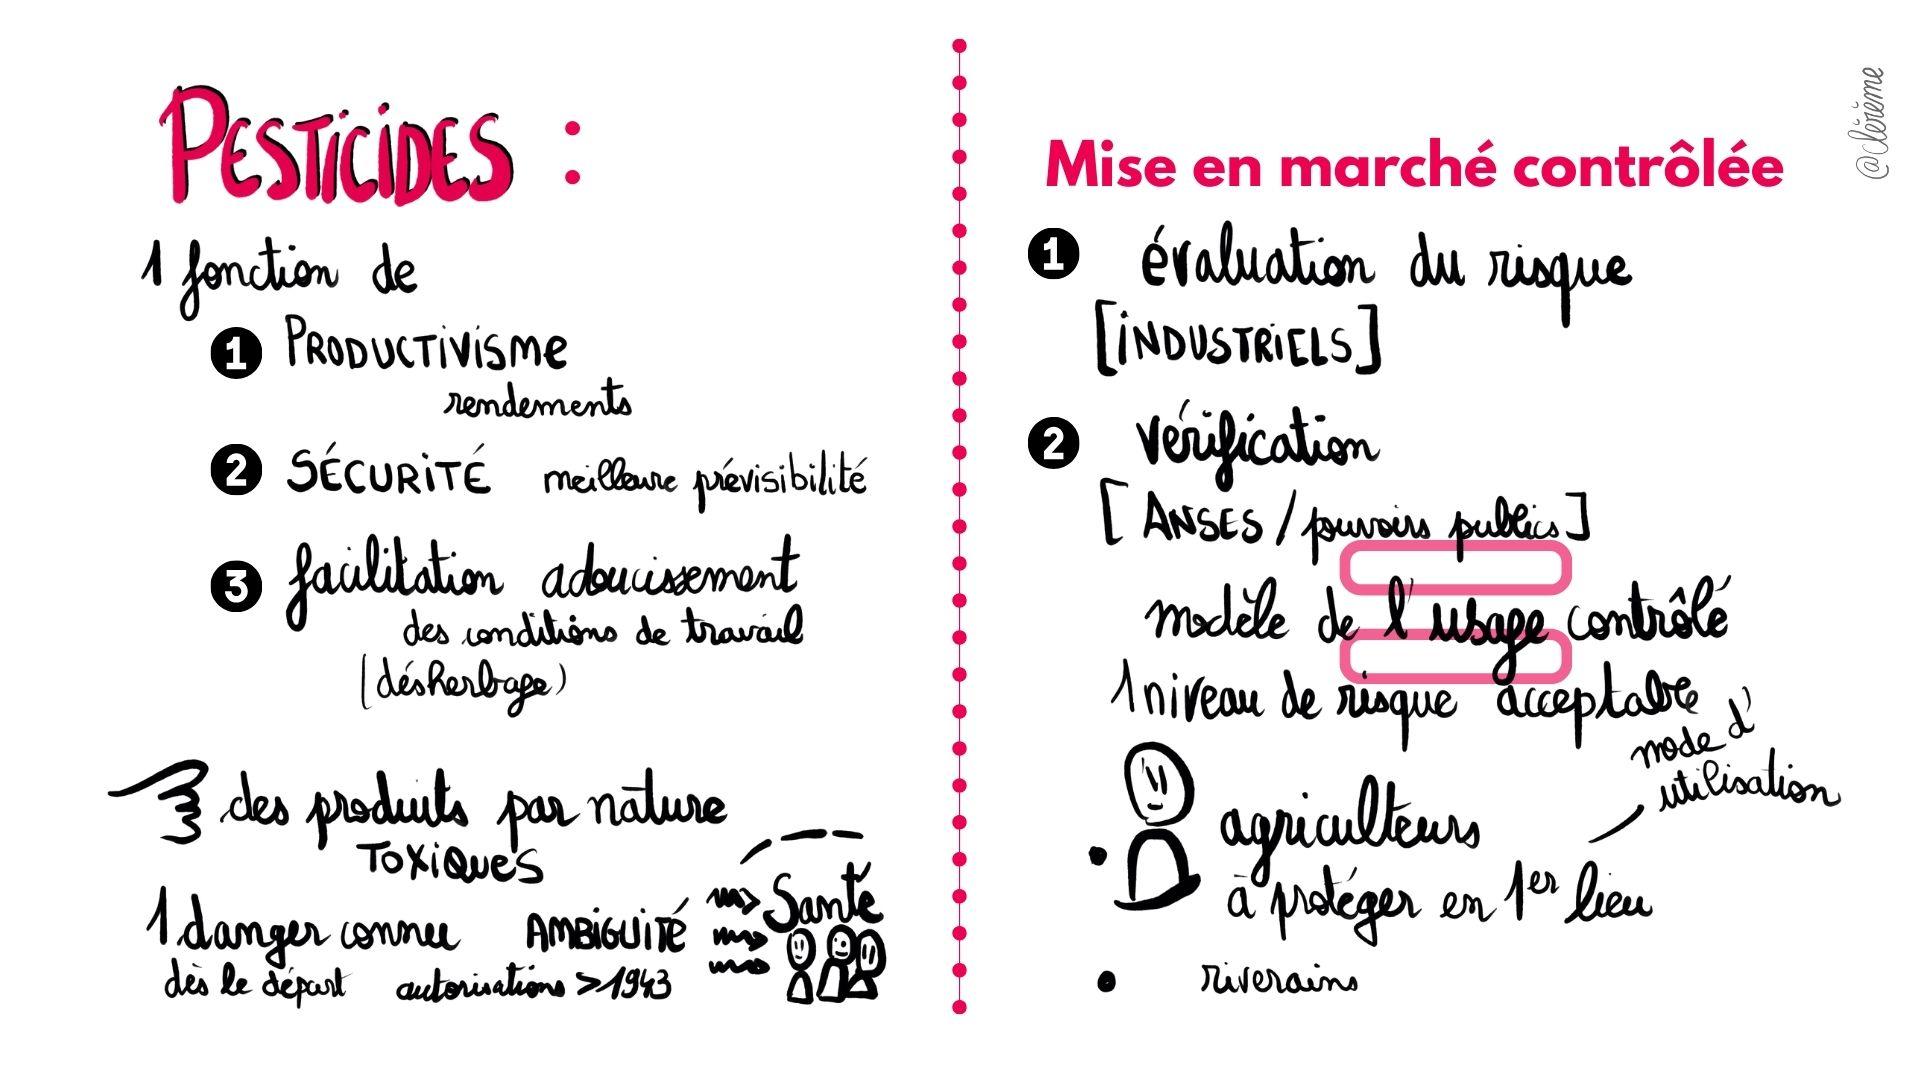 PESTICIDES :
1 fonction de
1 PRODUCTIVISME
rendements
2 SÉCURITÉ meilleure prévisibilité
3 facilitation adoucissement
des conditions de travail
(désherbage)
des produits par nature
TOXIQUES
1 danger connu AMBIGUITÉ Santé
dès le départ autorisations > 1943
Mise en marché contrôlée
1 évaluation du risque
[INDUSTRIELS]
2 vérification
[ANSES / pouvoirs publics]
modèle de l'usage contrôlé
1 niveau de risque acceptable
mode d'
utilisation
• agriculteurs
à protéger en 1er lieu
• riverains
@clérême